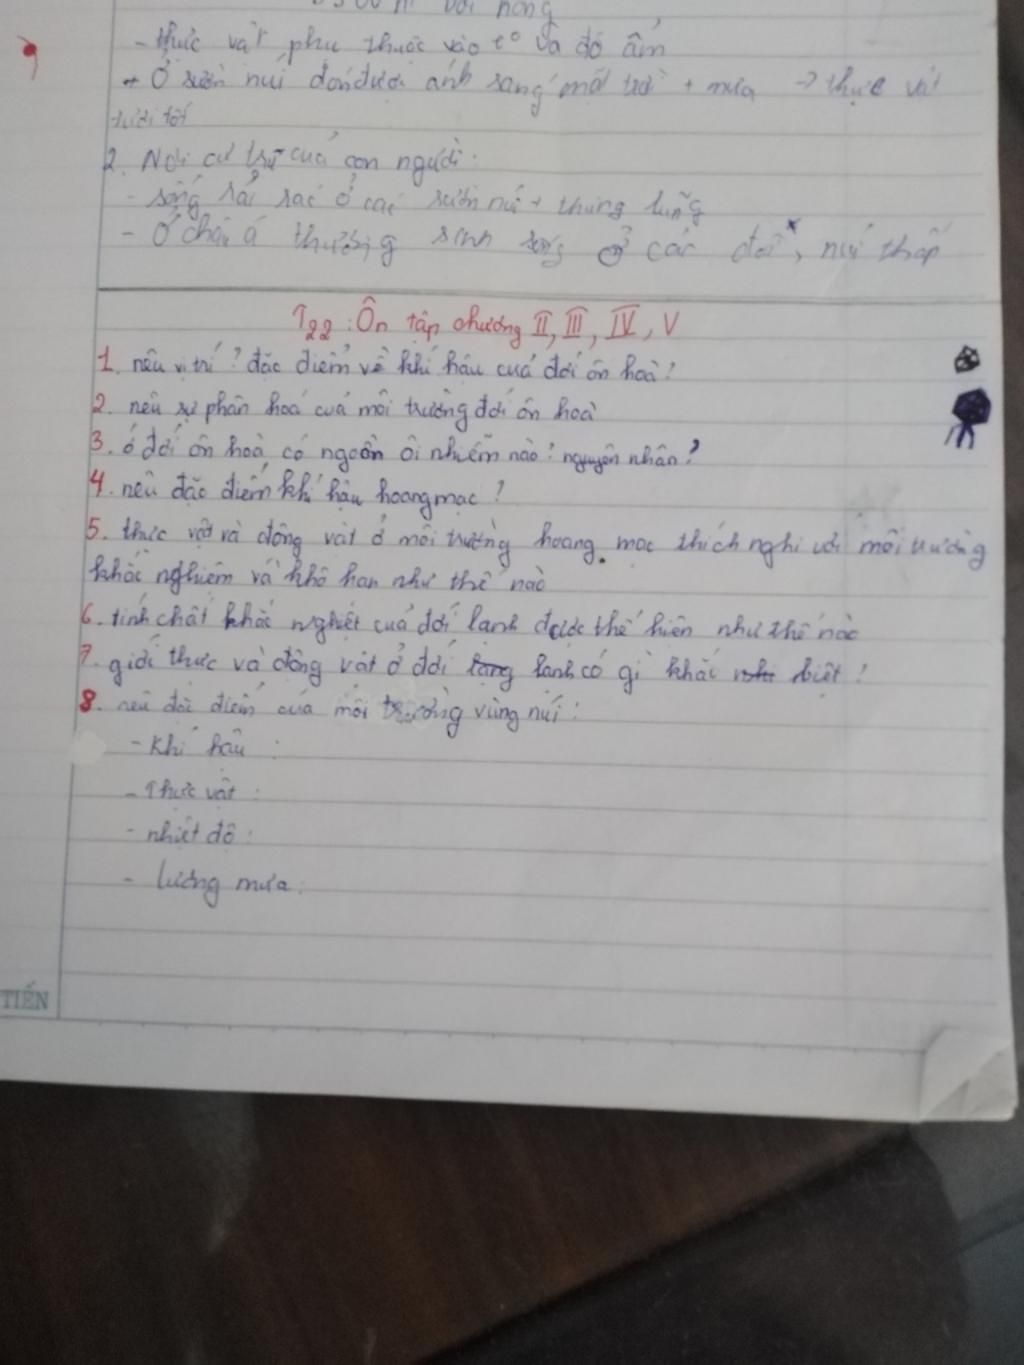 - thực vật phụ thuộc vào t° và độ ẩm
+ Ở sườn núi đón được ánh sáng mặt trời + mưa → thực vật
tươi tốt
2. Nơi cư trú của con người:
- sống rải rác ở các sườn núi + thung lũng
- Ở châu á thường sinh sống ở các đồi, núi thấp
T22: Ôn tập chương II, III, IV, V
1. nêu vị trí? đặc điểm về khí hậu của đới ôn hoà?
2. nêu sự phân hoá cuả môi trường đới ôn hoà
3. ở đới ôn hoà có nguồn ôi nhiễm nào? nguyên nhân?
4. nêu đặc điểm khí hậu hoang mạc?
5. thực vật và động vật ở môi trường hoang mạc thích nghi với môi trường
khắc nghiêm và khô hạn như thế nào
6. tính chất khắc nghiệt cuả đới lạnh được thể hiện như thế nào
7. giới thực và động vật ở đới lạnh có gì khác biệt?
8. nêu đặc điểm của môi trường vùng núi:
- Khí hậu :
- Thực vật :
- nhiệt độ :
- lượng mưa :
TIẾN